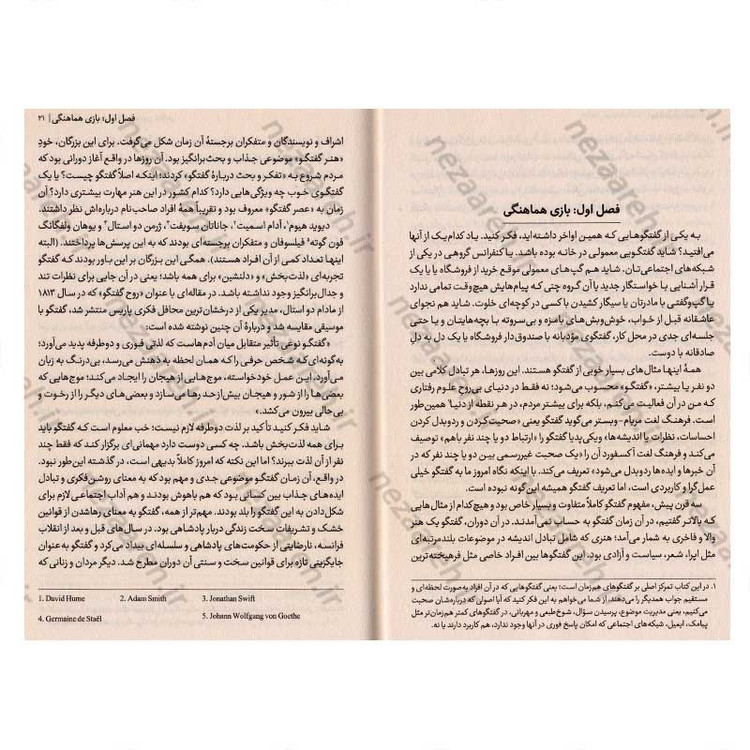 فصل اول: بازی هماهنگی
به یکی از گفتگوهایی که همین اواخر داشته‌اید، فکر کنید. یاد کدام یک از آنها
می‌افتید؟ شاید گفتگویی معمولی در خانه بوده باشد. یا کنفرانس گروهی در یکی از
شبکه‌های اجتماعی‌تان. شاید هم گپ‌های معمولی موقع خرید از فروشگاه یا با یک
قرار آشنایی با خواستگار جدید یا آن گروه چتی که پیام‌هایش هیچ‌وقت تمامی ندارد
یا گپ‌وگفتی با مادرتان یا سیگار کشیدن با کسی در کوچه‌ای خلوت. شاید هم نجوای
عاشقانه قبل از خواب، خوش‌وبش‌های بامزه و بی‌سروته با بچه‌هایتان و یا حتی
جلسه‌ای جدی در محل کار، گفتگوی مؤدبانه با صندوق‌دار فروشگاه یا یک دل به دل
صادقانه با دوست.
همهٔ اینها مثال‌های بسیار خوبی از گفتگو هستند. این روزها، هر تبادل کلامی بین
دو نفر یا بیشتر، «گفتگو» محسوب می‌شود؛ نه فقط در دنیای بی‌روحِ علوم رفتاری
که من در آن فعالیت می‌کنم، بلکه برای بیشتر مردم، در هر نقطه از دنیا¹ همین‌طور
است. فرهنگ لغت مریام-وبستر می‌گوید گفتگو یعنی «صحبت کردن و ردوبدل کردن
احساسات، نظرات یا اندیشه‌ها»، ویکی‌پدیا گفتگو را «ارتباط دو یا چند نفر باهم» توصیف
می‌کند و فرهنگ لغت آکسفورد آن را «یک صحبت غیررسمی بین دو یا چند نفر که در
آن خبرها و ایده‌ها ردوبدل می‌شود» تعریف می‌کند. با اینکه نگاه امروز ما به گفتگو خیلی
عمل‌گرا و کاربردی است، اما تعریف گفتگو همیشه این‌گونه نبوده است.
سه قرن پیش، مفهوم گفتگو کاملاً متفاوت و بسیار خاص بود و هیچ‌کدام از مثال‌هایی
که بالاتر گفتیم، در آن زمان گفتگو به حساب نمی‌آمدند. در آن دوران، گفتگو یک هنر
والا و فاخری به شمار می‌آمد؛ هنری که شامل تبادل اندیشه در موضوعات بلندمرتبه‌ای
مثل اپرا، شعر، سیاست و آزادی بود. این گفتگوها بین افراد خاصی مثل فرهیخته‌ترین
۱. در این کتاب تمرکز اصلی بر گفتگوهای هم‌زمان است؛ یعنی گفتگوهایی که در آن افراد به‌صورت لحظه‌ای و
مستقیم جواب همدیگر را می‌دهند. از شما می‌خواهم به این فکر کنید که آیا اصولی که درباره‌شان صحبت
می‌کنیم، یعنی مدیریت موضوع، پرسیدن سؤال، شوخ‌طبعی و مهربانی، در گفتگوهای کمتر هم‌زمان‌تر مثل
پیامک، ایمیل، شبکه‌های اجتماعی که امکان پاسخ فوری در آنها وجود ندارد، هم کاربرد دارند یا نه.
فصل اول: بازی هماهنگی | ۲۱
اشراف و نویسندگان و متفکران برجستهٔ آن زمان شکل می‌گرفت. برای این بزرگان، خودِ
«هنر گفتگو» موضوعی جذاب و بحث‌برانگیز بود. آن روزها در واقع آغاز دورانی بود که
مردم شروع به «تفکر و بحث دربارهٔ گفتگو» کردند؛ اینکه اصلاً گفتگو چیست؟ یا یک
گفتگوی خوب چه ویژگی‌هایی دارد؟ کدام کشور در این هنر مهارت بیشتری دارد؟ آن
زمان به «عصر گفتگو» معروف بود و تقریباً همهٔ افراد صاحب‌نام درباره‌اش نظر داشتند.
دیوید هیوم¹، آدام اسمیت²، جاناتان سویفت³، ژرمن دو استال⁴ و یوهان ولفگانگ
فون گوته⁵ فیلسوفان و متفکران برجسته‌ای بودند که به این پرسش‌ها پرداختند. (البته
اینها تعداد کمی از آن افراد هستند). همگی این بزرگان بر این باور بودند که گفتگو
تجربه‌ای «لذت‌بخش» و «دلنشین» برای همه باشد؛ یعنی در آن جایی برای نظرات تند
و جدال‌برانگیز وجود نداشته باشد. در مقاله‌ای با عنوان «روح گفتگو» که در سال ۱۸۱۳
از مادام دو استال، مدیر یکی از درخشان‌ترین محافل فکری پاریس منتشر شد، گفتگو با
موسیقی مقایسه شد و دربارهٔ آن چنین نوشته شده است:
«گفتگو نوعی تأثیر متقابل میان آدم‌هاست که لذتی فوری و دوطرفه پدید می‌آورد؛
به‌گونه‌ای که شخص حرفی را که همان لحظه به ذهنش می‌رسد، بی‌درنگ به زبان
می‌آورد. این عمل خودخواسته، موج‌هایی از هیجان را ایجاد می‌کند؛ موج‌هایی که
بعضی‌ها را از شور و هیجان بیش‌ازحد رها می‌سازد و بعضی‌های دیگر را از رخوت و
بی‌حالی بیرون می‌کشد.»
شاید فکر کنید تأکید بر لذت دوطرفه لازم نیست؛ خب معلوم است که گفتگو باید
برای همه لذت‌بخش باشد. چه کسی دوست دارد مهمانی‌ای برگزار کند که فقط چند
نفر از آن لذت ببرند؟ اما این نکته که امروز کاملاً بدیهی است، در گذشته این‌طور نبود.
در واقع، آن زمان گفتگو موضوعی جدی و مهم بود که به معنای روشن‌فکری و تبادل
ایده‌های جذاب بین کسانی بود که هم باهوش بودند و هم آداب اجتماعی لازم برای
شکل‌دادن به این گفتگو را بلد بودند. مهم‌تر از همه، گفتگو به معنای رهاشدن از قوانین
خشک و تشریفات سخت زندگی دربار پادشاهی بود. در سال‌های قبل و بعد از انقلاب
فرانسه، نارضایتی از حکومت‌های پادشاهی و سلسله‌ای بیداد می‌کرد و گفتگو به‌عنوان
جایگزینی تازه برای قوانین سخت و سنتی آن دوران مطرح شد. دیگر مردان و زنانی که
1. David Hume 2. Adam Smith 3. Jonathan Swift
4. Germaine de Staël 5. Johann Wolfgang von Goethe
nezaareh.ir